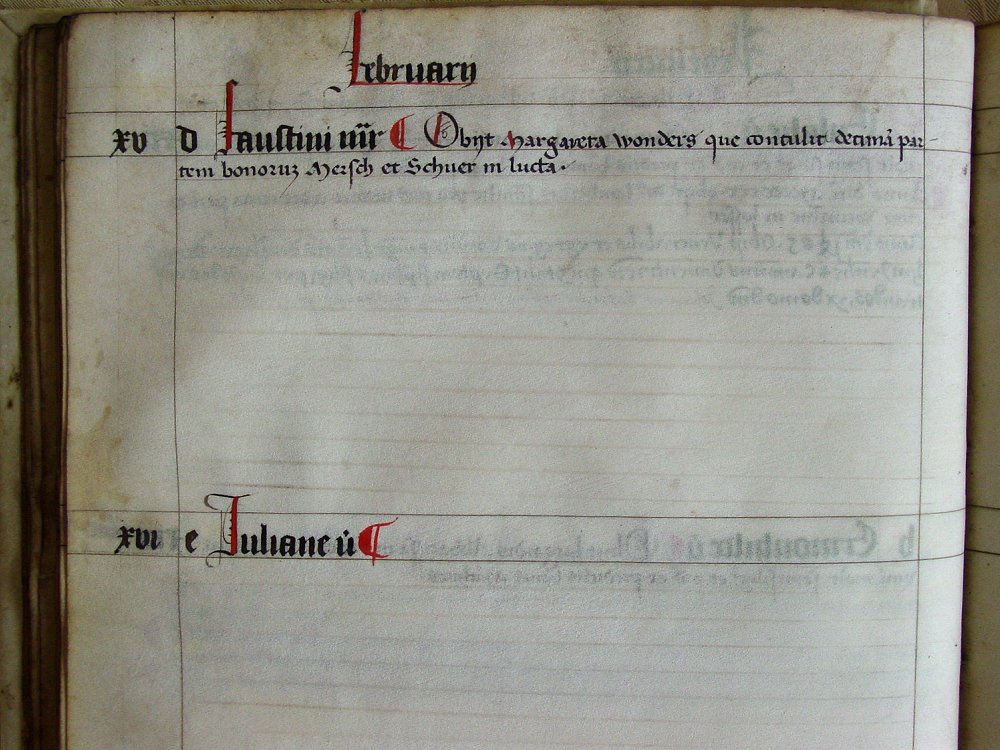 February
xv d Faustini mr̄ Obijt Margareta Wonders que contulit decimā par-
tem bonoruz Mersch et Schuer in lucta.
xvi e Juliane ū